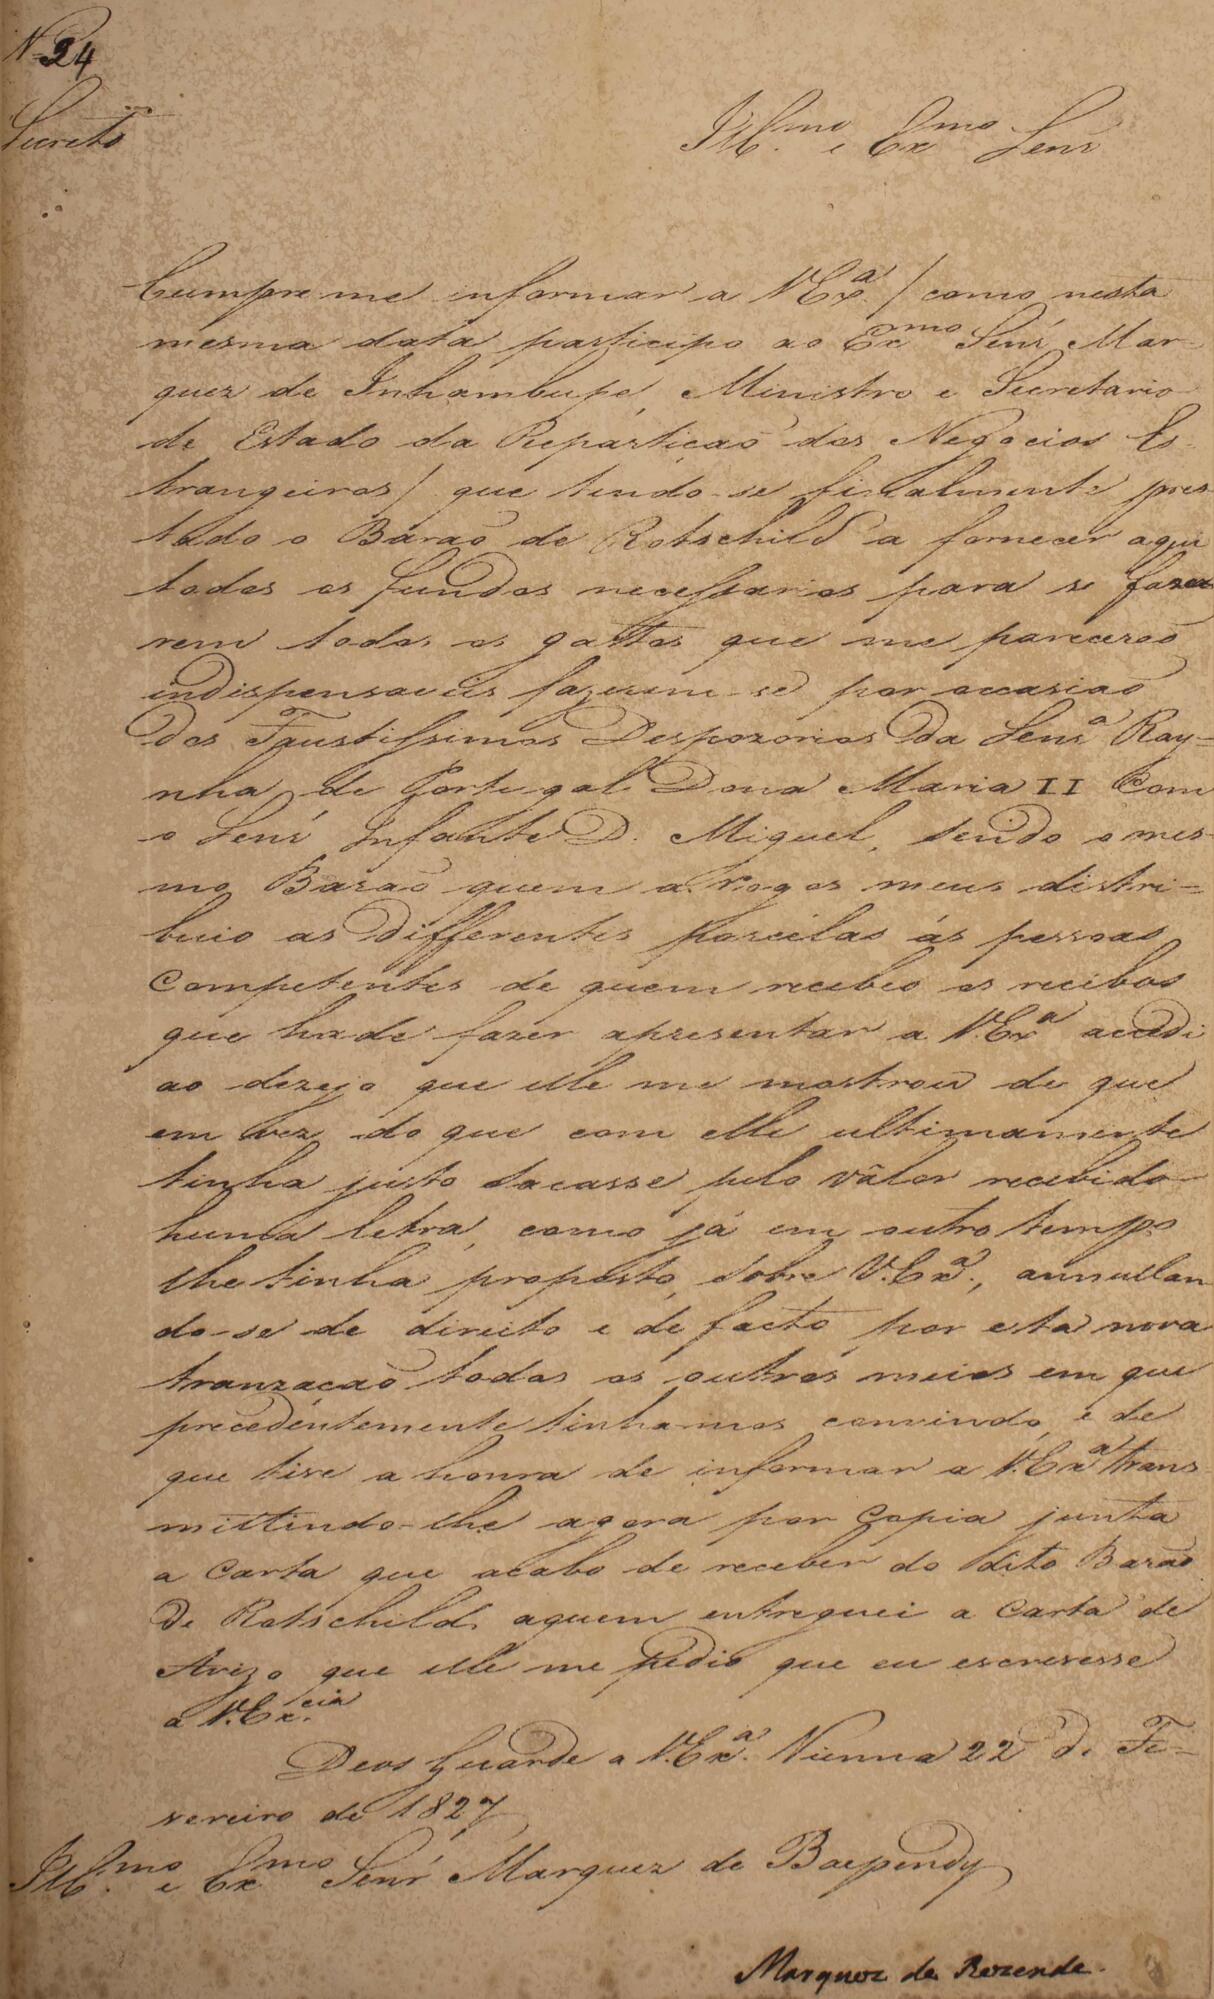 N. 24
Secreto
Ill.mo e Ex.mo Senr
Cumpre me informar a V.Ex.a / como nesta
mesma data participo ao Ex.mo Senr Mar-
quez de Inhambupe, Ministro e Secretario
de Estado da Repartiçaõ dos Negocios Es-
trangeiros / que tendo-se finalmente pres-
tado o Baraõ de Rotschild a fornecer aqui
todos os fundos necessarios para se faze-
rem todos os gastos que me pareceraõ
indispensaveis fazerem-se por occasiaõ
dos Faustissimos Despozorios da Senr.a Ray-
nha de Portugal Dona Maria II Com
o Senr Infante D. Miguel, sendo o mes-
mo Baraõ quem a rogos meus distri-
buio as differentes parcélas ás pessoas
Competentes de quem recebeo os recibos
que hade fazer apresentar a V.Ex.a accedi
ao dezejo que elle me mostrou de que
em vez do que com elle ultimamente
tinha justo sacasse pelo vâlor recebido
huma letra, como já em outro tempo
lhe tinha proposto, sobre V.Ex.a, annullan-
do-se de direito e de facto por esta nova
tranzacaõ todos os outros meios em que
precedentemente tinhamos convindo, e de
que tive a honra de informar a V.Ex.a trans-
mittindo-lhe agora por Copia junta
a Carta que acabo de receber do dito Baraõ
de Rotschild, aquem entreguei a Carta de
Avizo que elle me pedio que eu escrevesse
a V.Ex.cia
Deos Guarde a V.Ex.a Vienna 22 de Fe-
vereiro de 1827
Ill.mo e Ex.mo Senr Marquez de Baependy
Marquez de Rezende.